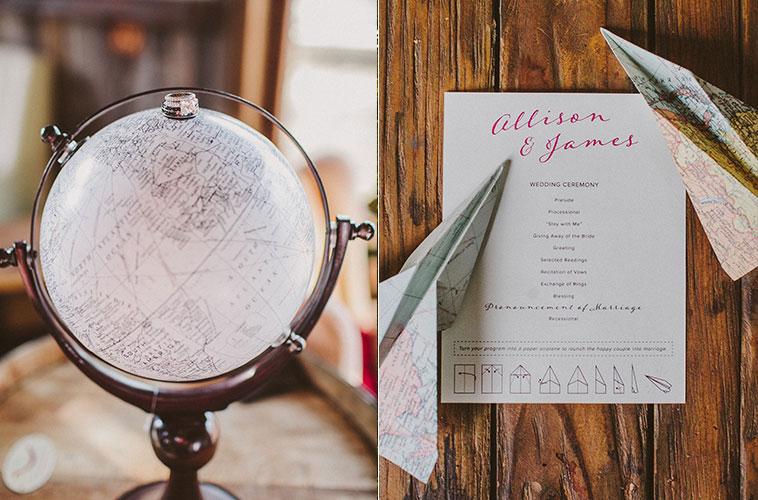 NORTH ATLANTIC
SOUTH
OCEAN
SOUTH
AMERICA
Allison
& James
WEDDING CEREMONY
Prelude
Processional
"Stay with Me"
Giving Away of the Bride
Greeting
Selected Readings
Recitation of Vows
Exchange of Rings
Blessing
Pronouncement of Marriage
Recessional
Turn your program into a paper plane to launch the happy couple into marriage